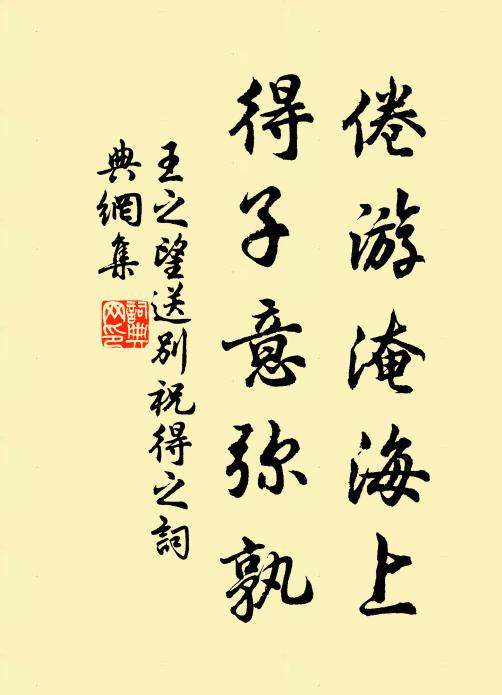 倦游淹海上
得子意弥孰
王之望送别祝得之詞
典網集
詞典
网印